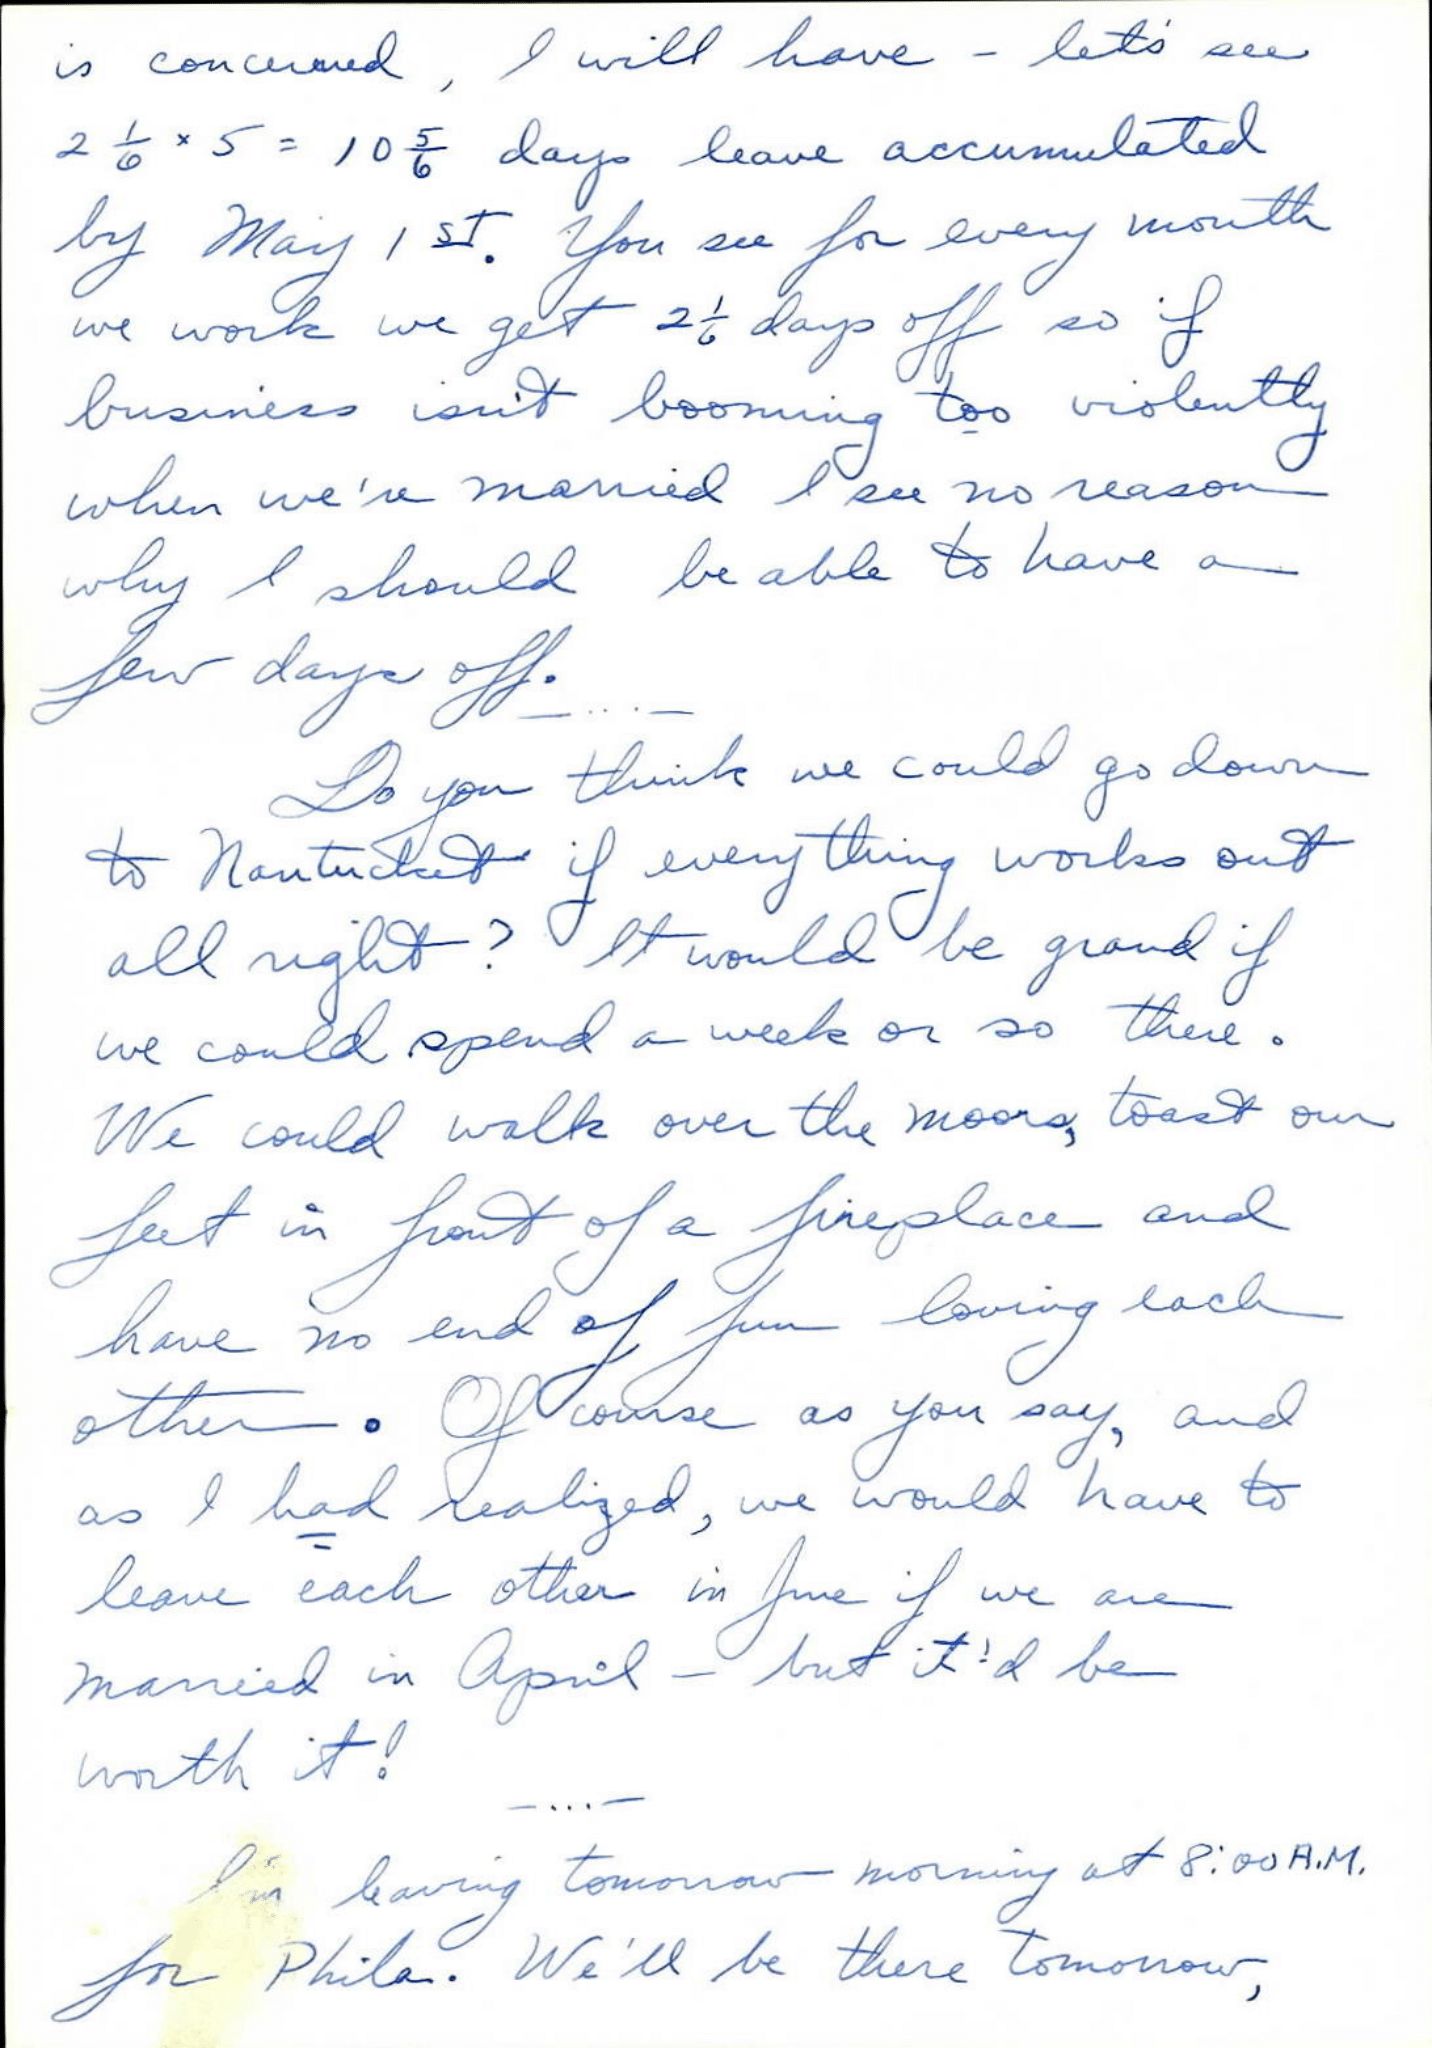 is concerned, I will have - let's see
2 1/6 × 5 = 10 5/6 days leave accumulated
by May 1 ST. You see for every month
we work we get 2 1/6 days off so if
business isn't booming too violently
when we're married I see no reason
why I should be able to have a
few days off.
—...—
Do you think we could go down
to Nantucket if everything works out
all right? It would be grand if
we could spend a week or so there.
We could walk over the moors, toast our
feet in front of a fireplace and
have no end of fun loving each
other. Of course as you say, and
as I had realized, we would have to
leave each other in June if we are
married in April - but it'd be
worth it!
—...—
I'm leaving tomorrow morning at 8:00 A.M.
for Phila. We'll be there tomorrow,